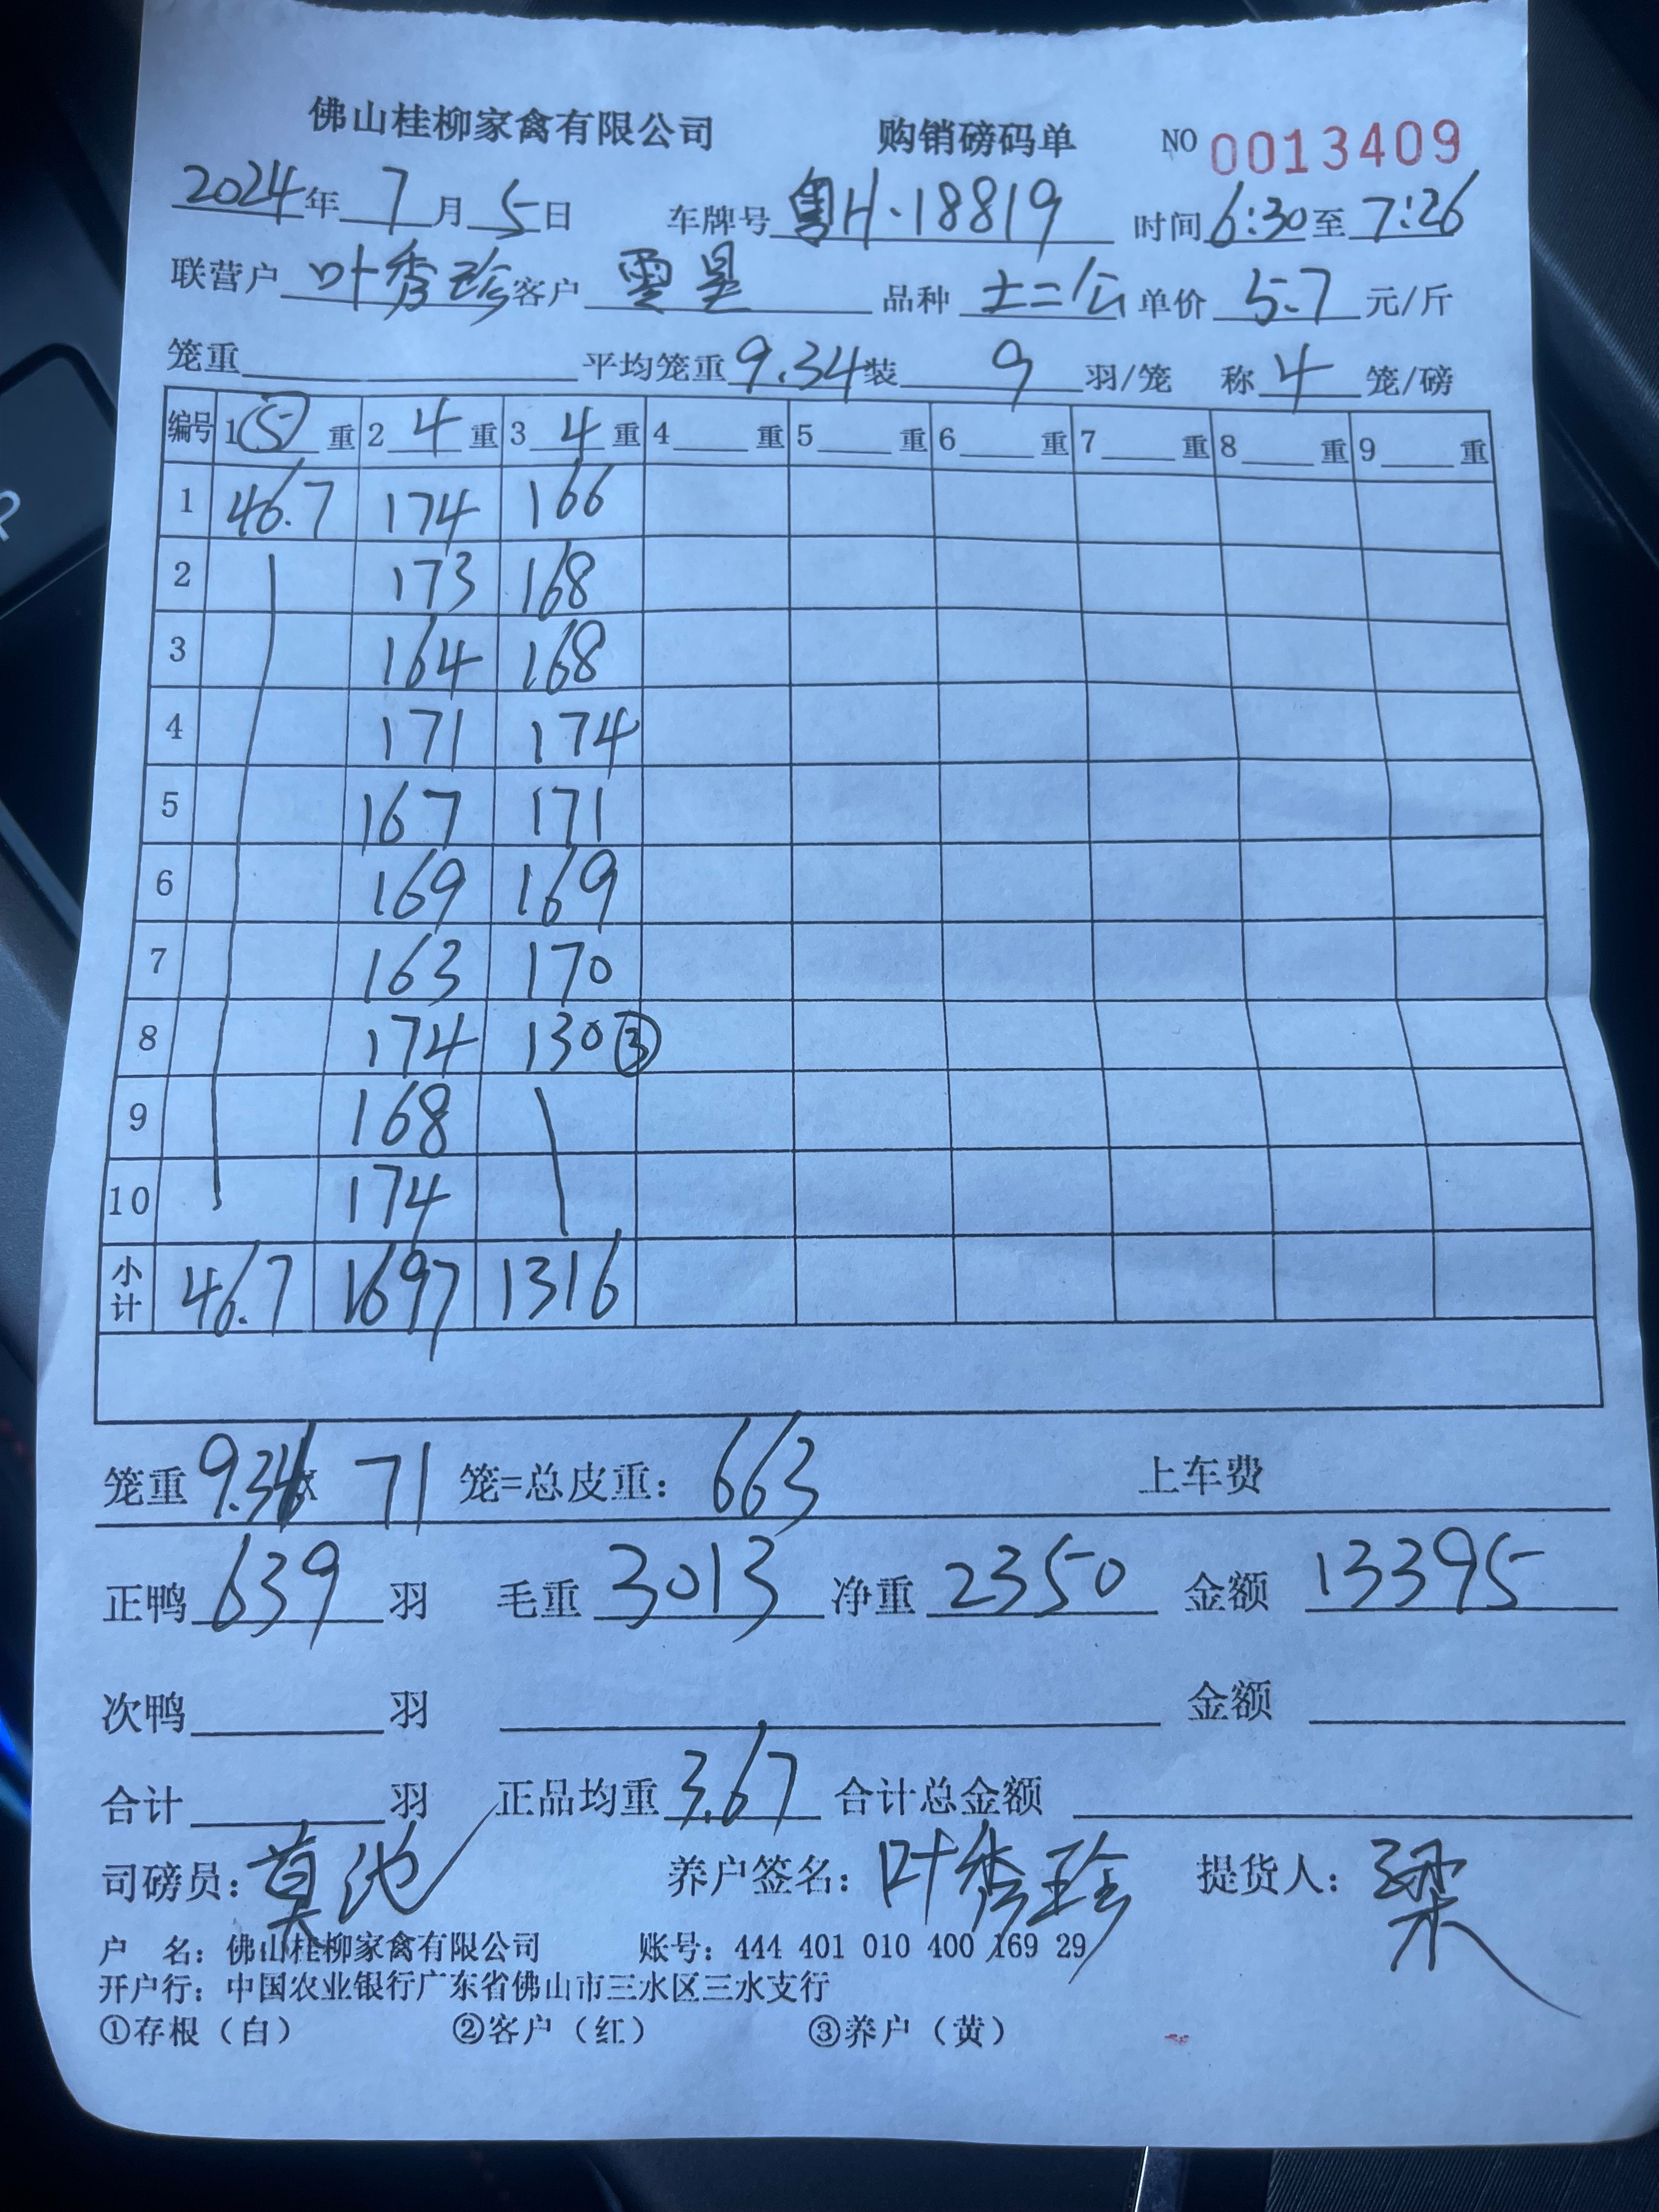 佛山桂柳家禽有限公司 购销磅码单 NO 0013409
2024年7月5日 车牌号 粤H·18819 时间6:30至7:26
联营户 叶秀珍 客户 品种 土二公 单价 5.7 元/斤
笼重 平均笼重 9.34 装 9 羽/笼 称 4 笼/磅
编号 1 ⑤ 重 2 4 重 3 4 重 4 重 5 重 6 重 7 重 8 重 9 重
1 46.7 174 166
2 173 168
3 164 168
4 171 174
5 167 171
6 169 169
7 163 170
8 174 130 ③
9 168
10 174
小计 46.7 1697 1316
笼重 9.34 x 71 笼=总皮重: 663 上车费
正鸭 639 羽 毛重 3013 净重 2350 金额 13395
次鸭 羽 金额
合计 羽 正品均重 3.67 合计总金额
司磅员: 莫池 养户签名: 叶秀珍 提货人: 梁
户 名: 佛山桂柳家禽有限公司 账号: 444 401 010 400 169 29
开户行: 中国农业银行广东省佛山市三水区三水支行
①存根（白） ②客户（红） ③养户（黄）